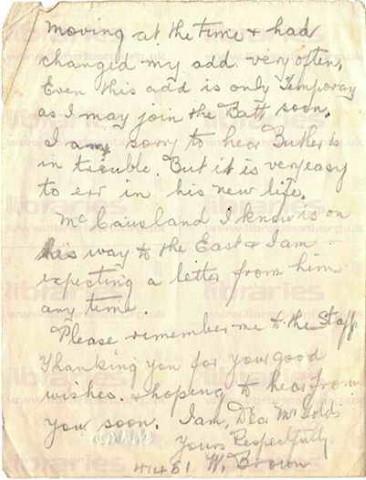 moving at the time & had
changed my add. very often,
Even this add is only Temporay
as I may join the Batt soon.
I am sorry to hear Butler is
in trouble. But it is very easy
to err in his new life,
McCausland I know is on
his way to the East & I am
expecting a letter from him
any time.
Please remember me to the Staff
Thanking you for your good
wishes. & hoping to hear from
you soon. I am, Dear Mr Goldi
Yours Respectfully
W. Brown
libraries